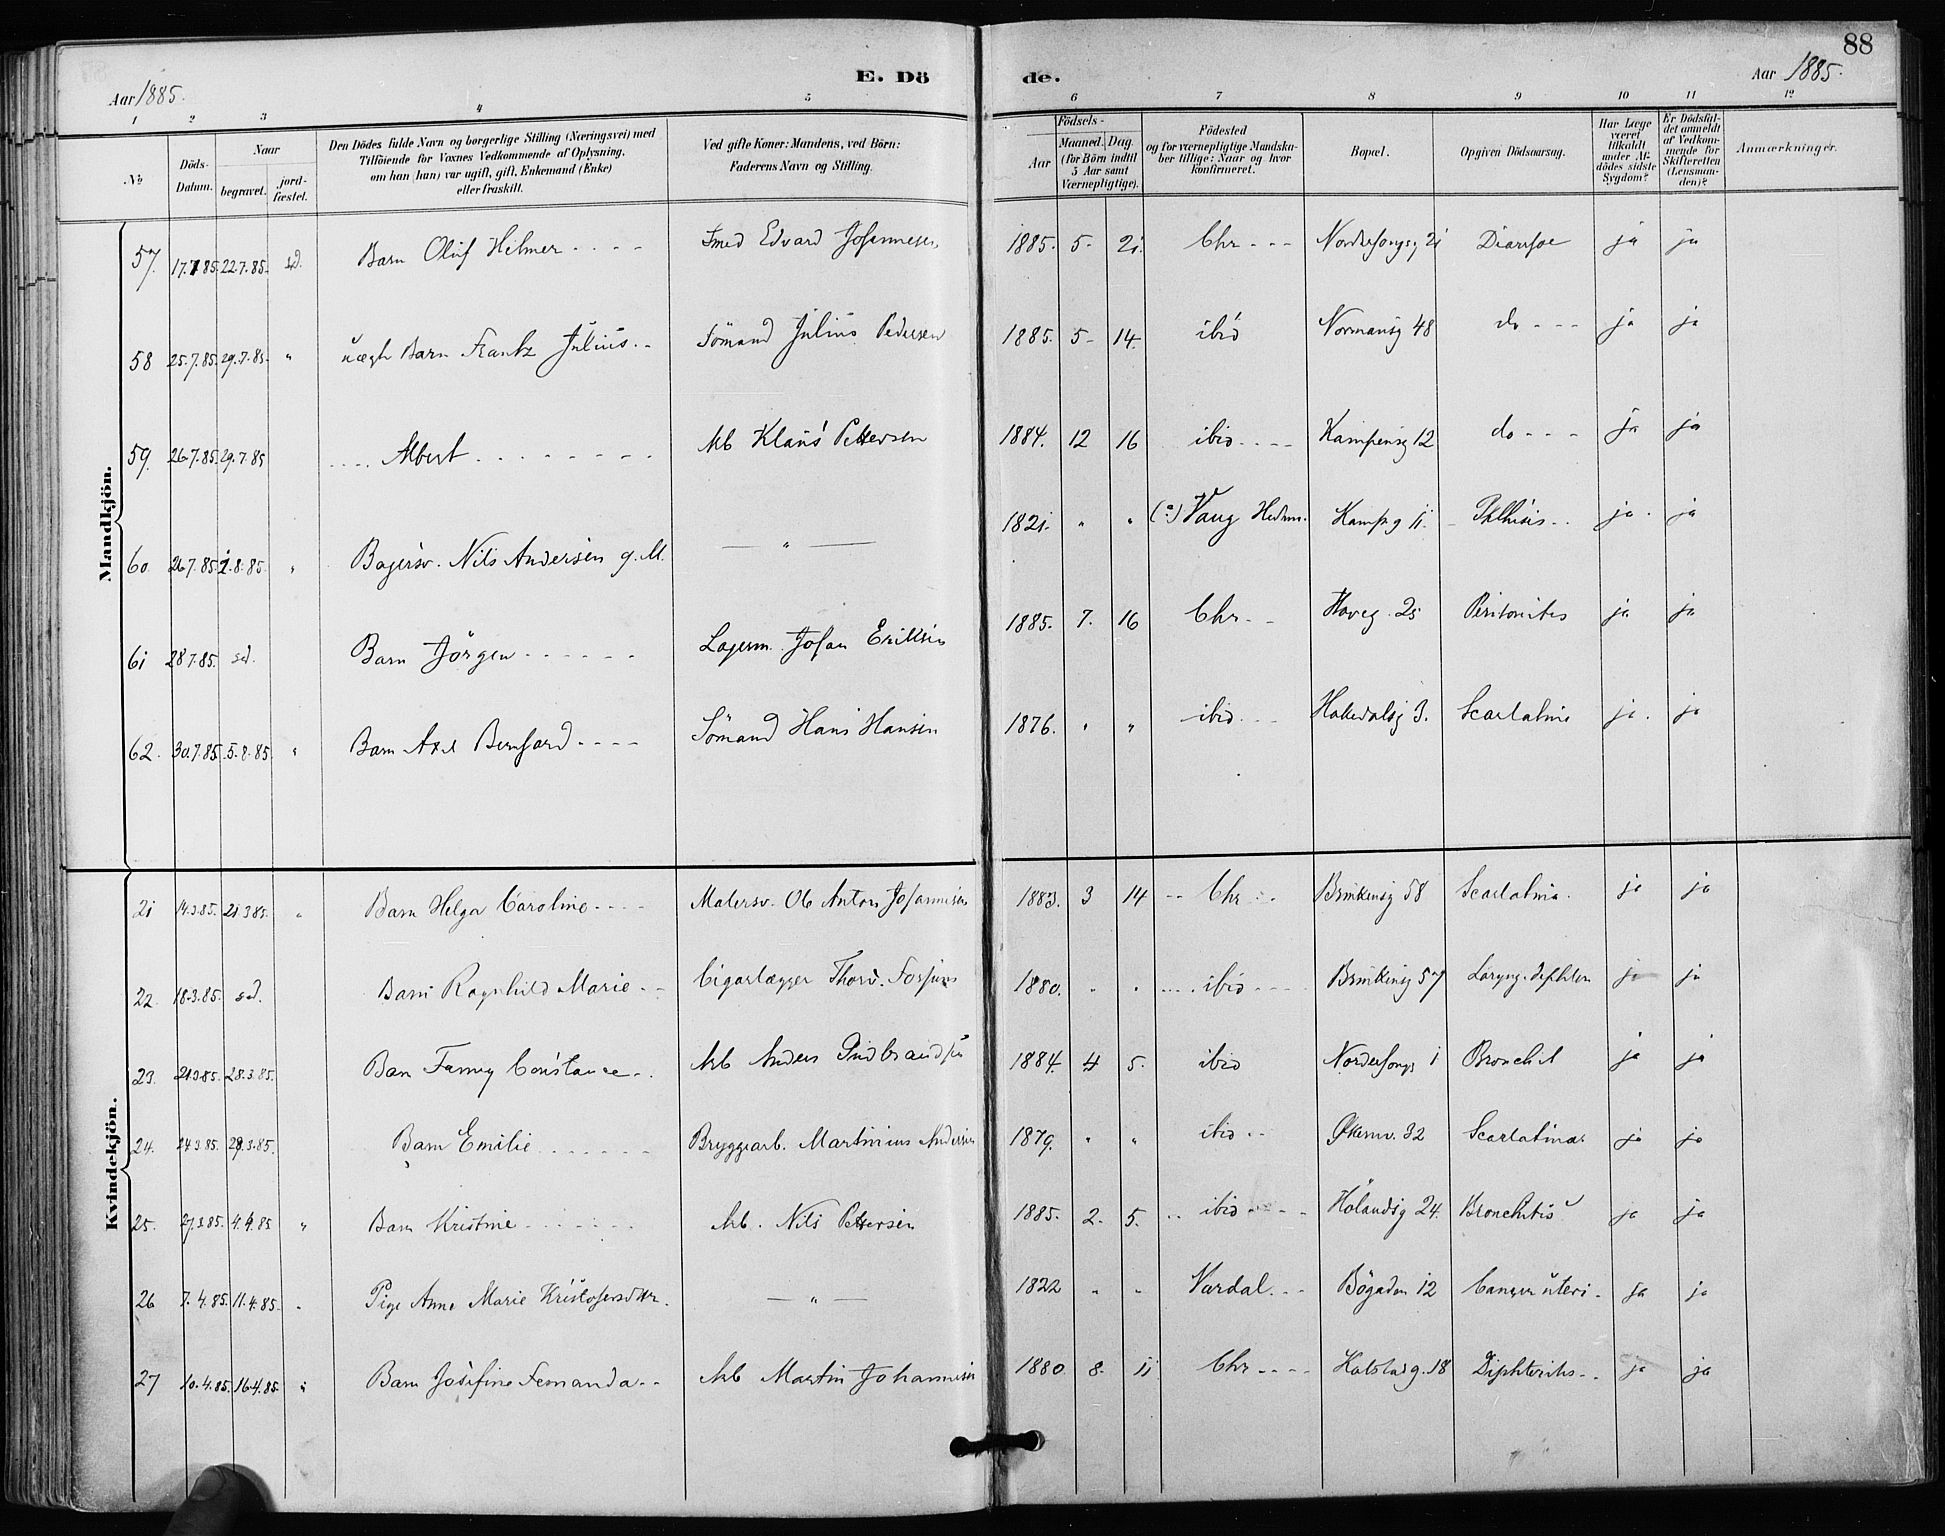 88
Aar 1885.
E. Dö
de.
Aar 1885.
1 2 3 4 5 6 7 8 9 10 11 12
No
Döds-Datum.
Naar
begravet.
jord-fæstet.
Den Dödes fulde Navn og borgerlige Stilling (Næringsvei) med
Tilföiende for Voxnes Vedkommende af Oplysning,
om han (hun) var ugift, gift, Enkemand (Enke)
eller fraskilt.
Ved gifte Koner: Mandens, ved Börn:
Faderens Navn og Stilling.
Födsels-
Aar
Maaned. Dag
(for Börn indtil
5 Aar samt
Værnepligtige).
Födested
og for værnepligtige Mandska-
ber tillige: Naar og hvor
konfirmeret.
Bopæl.
Opgiven Dödsaarsag.
Har Læge
været
tilkaldt
under Af-
dödes sidste
Sygdom?
Er Dödsfal-
det anmeldt
af Vedkom-
mende for
Skifteretten
(Lensman-
den)?
Anmærkninger.
Mandkjön.
57. 17.7.85. 22.7.85. sd. Barn Oluf Hilmer Smed Edvard Johannesen 1885. 5 21. Chr Nordrehougsg 21 Diarrhoe ja ja
58 25.7.85. 29.7.85. " uægte Barn Frantz Julius Sömand Julius Pedersen 1885. 5 14. ibid Normansg 48 do ja ja
59. 26.7.85. 29.7.85 Albert Arb Klaus Pettersen 1884. 12 16 ibid Kampensg 12 do ja ja
60. 26.7.85. 1.8.85. " Bagersv. Nils Andersen g. M. — " — 1821. " " (?) Vang Hedm. Kampg 11 Phthisis ja ja
61 28.7.85. sd. Barn Jörgen Lagerm. Johan Eriksen 1885. 7. 16 Chr Hoveg. 25 Peritonites ja ja
62. 30.7.85. 5.8.85 " Barn Axel Bernhard Sömand Hans Hansen 1876. " " ibid Hakedalsg 3. Scarlatina ja ja
Kvindekjön.
21 14.3.85. 21.3.85. " Barn Helga Caroline Malersv. Ole Anton Johannesen 1883. 3 14 Chr Brinkensg 58 Scarlatina. ja ja
22. 18.3.85. sd. Barn Ragnhild Marie Cigarlægger Thorv. 1880. " " ibid Brinkensg 57 Laryng. diphter ja ja
23. 21.3.85. 28.3.85. Barn Fanny Constance Arb Anders Gudbrandsen 1884. 4 5. ibid Nordrehougs 1 Bronchit ja ja
24. 24.3.85. 29.3.85. Barn Emilie Bryggearb. Martinius Andersen 1879. " " ibid Økernv. 32 Scarlatina ja ja
25. 27.3.85. 4.4.85 " Barn Kristine Arb. Nils Pettersen 1885. 2. 5. ibid Hölandsg 24. Bronchitis ja ja
26 7.4.85. 11.4.85. " Pige Anne Marie Kristofersdtr. — " — 1822 " " Vardal Bögaden 12 Cancer uteri ja ja
27 10.4.85. 16.4.85. " Barn Josefine Fernanda Arb Martin Johannesen 1880 8. 11 Chr Halstadg. 18 Diphteritis ja ja